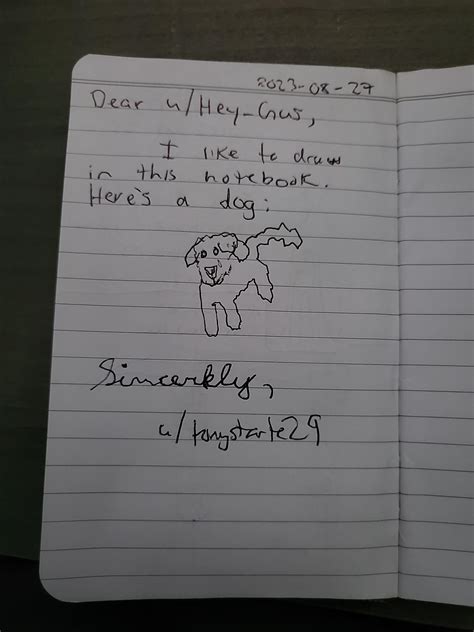 2023-08-27
Dear u/Hey_Gus,
I like to draw
in this notebook.
Here's a dog:
Sincerkly,
u/tonystarte29